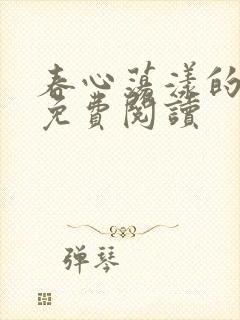 春心蕩漾的
免費閱讀
弹琴